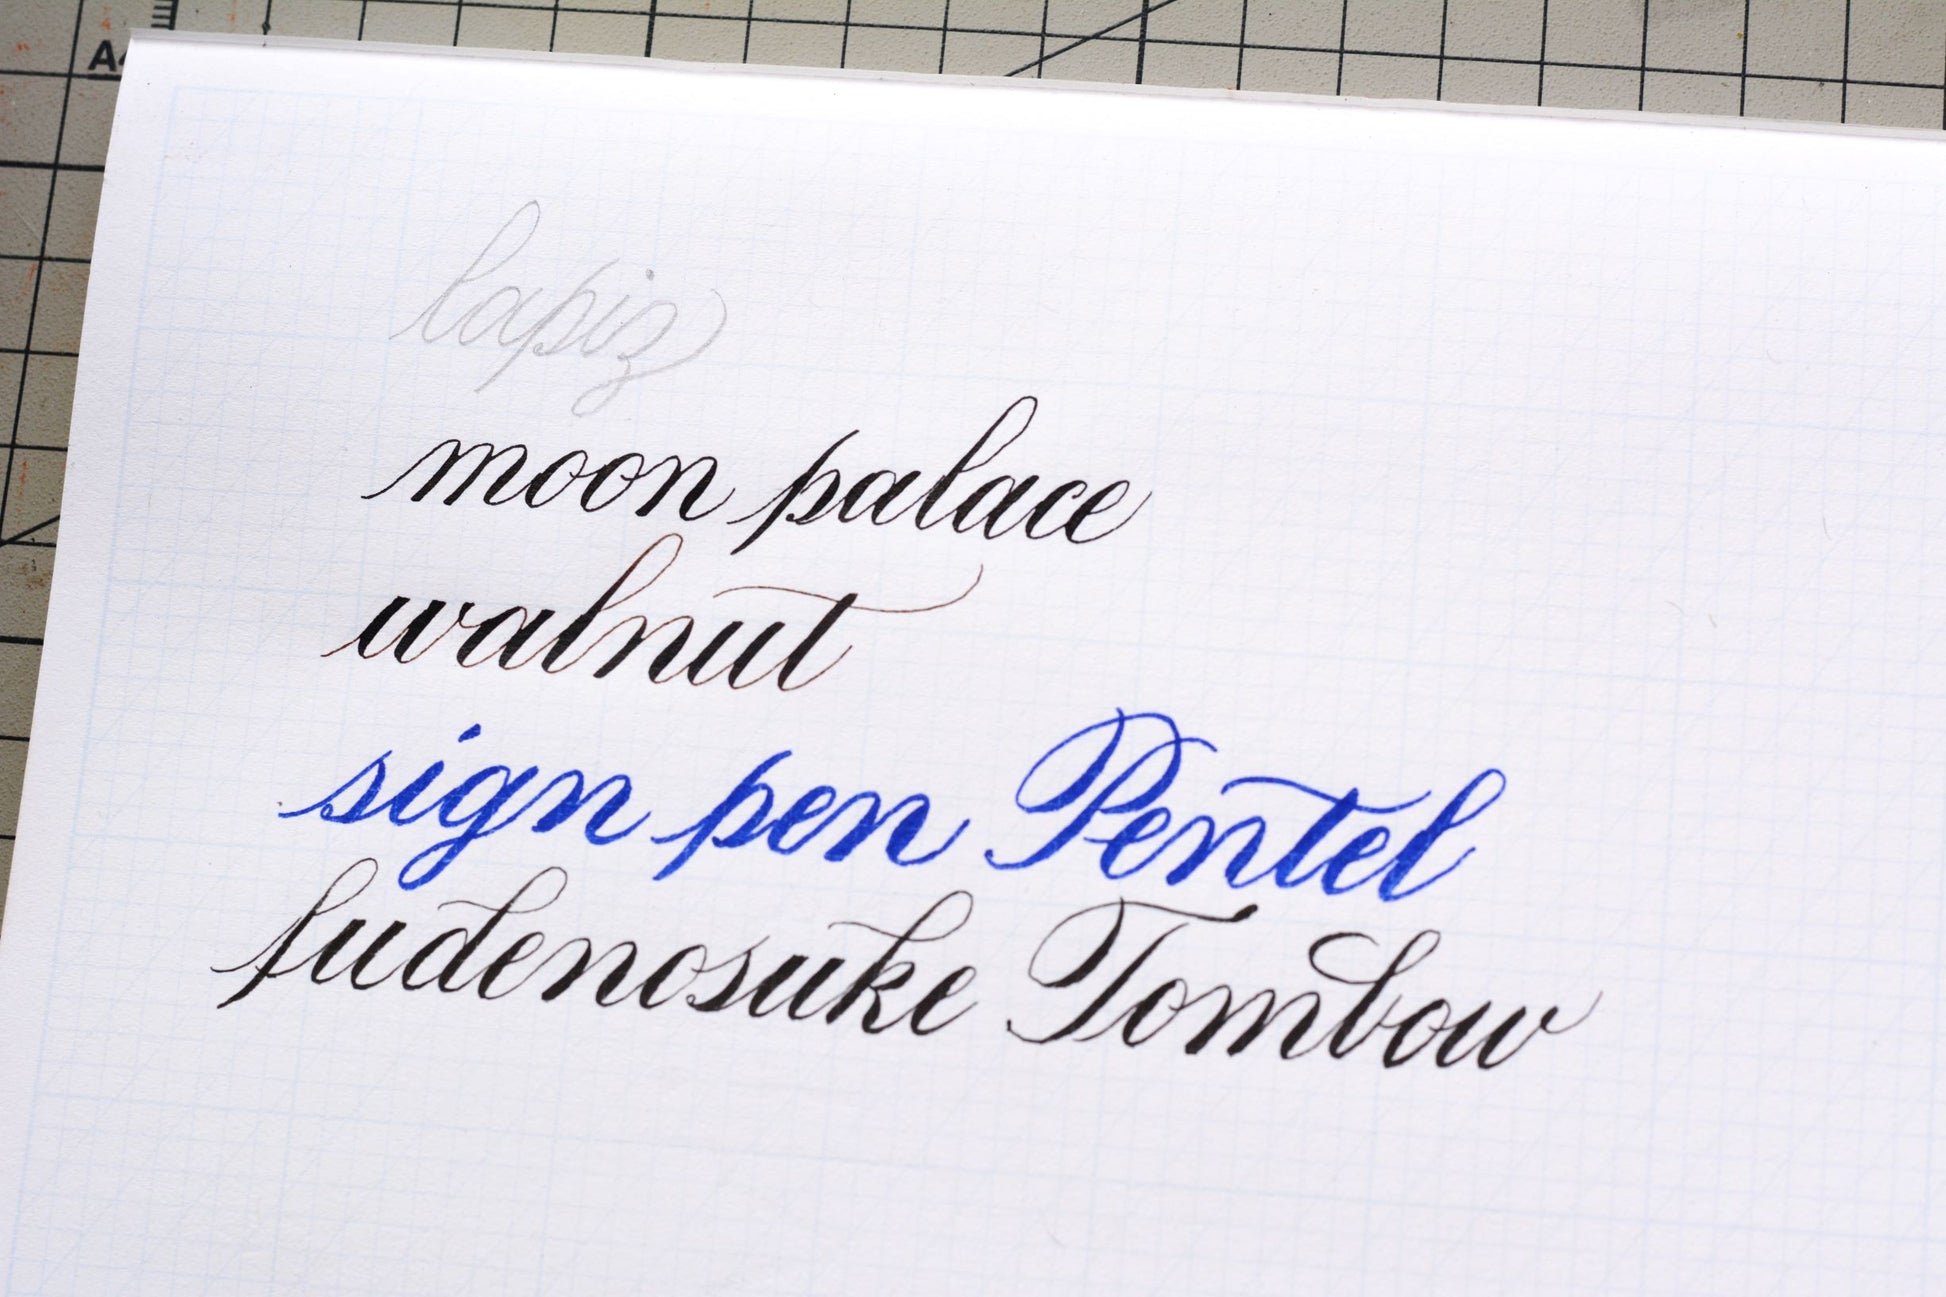 A4
lapiz
moon palace
walnut
sign pen Pentel
fudenosuke Tombow